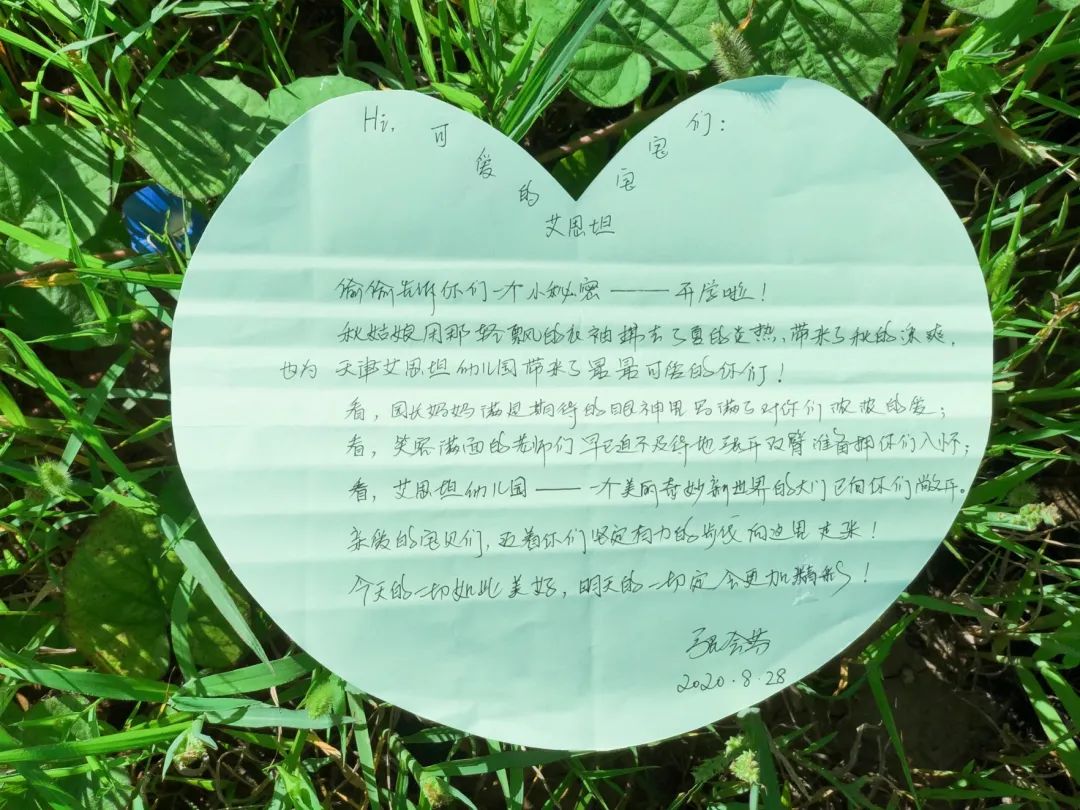 Hi, 可爱的宝宝们：
艾恩坦
偷偷告诉你们一个小秘密——开学啦！
秋姑娘用那轻飘的衣袖拂去了夏的炎热，带来了秋的凉爽，
也为天津艾恩坦幼儿园带来了最最可爱的你们！
看，园长妈妈满是期待的眼神里写满了对你们浓浓的爱；
看，笑容满面的老师们早已迫不及待地张开双臂准备拥你们入怀；
看，艾恩坦幼儿园——一个美丽奇妙新世界的大门已向你们敞开。
亲爱的宝贝们，迈着你们坚定有力的步伐向这里走来！
今天的一切如此美好，明天的一切定会更加精彩！
2020.8.28